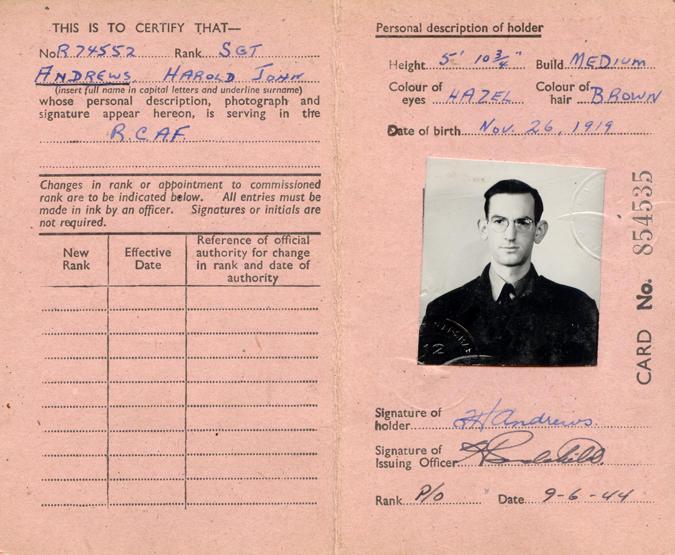 THIS IS TO CERTIFY THAT—
No R74552 Rank SGT
ANDREWS HAROLD JOHN
(insert full name in capital letters and underline surname)
whose personal description, photograph and
signature appear hereon, is serving in the
R.C.A.F.
Changes in rank or appointment to commissioned
rank are to be indicated below. All entries must be
made in ink by an officer. Signatures or initials are
not required.
New Rank
Effective Date
Reference of official authority for change in rank and date of authority
Personal description of holder
Height 5' 10 3/4" Build MEDIUM
Colour of eyes HAZEL Colour of hair BROWN
Date of birth Nov. 26, 1919
CARD No. 854535
Signature of holder HJ Andrews.
Signature of Issuing Officer
Rank P/O Date 9-6-44